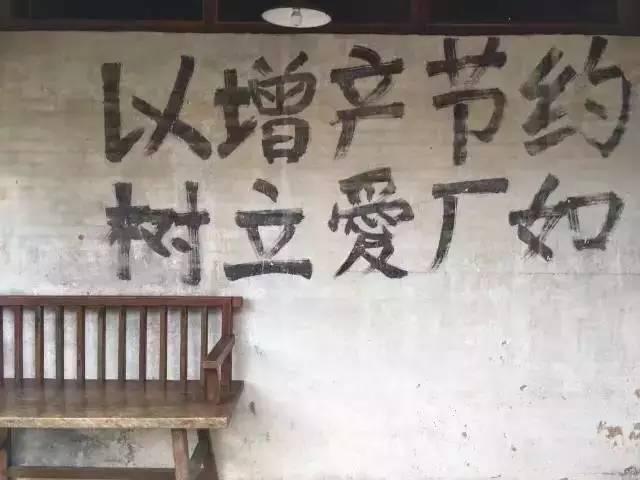 以增产节约
树立愛厂如